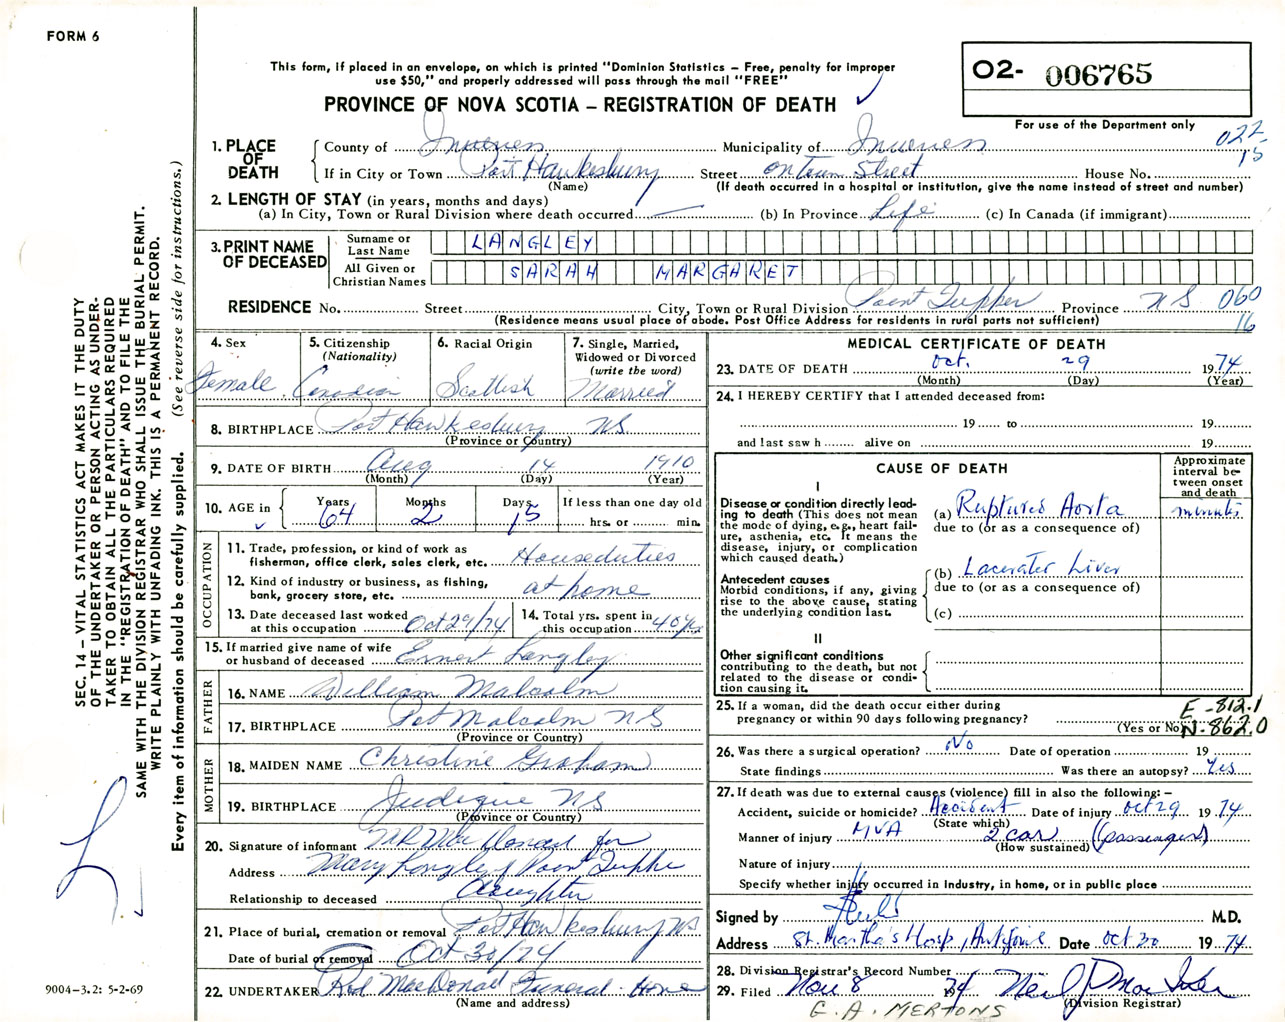 FORM 6
This form, if placed in an envelope, on which is printed "Dominion Statistics — Free, penalty for improper
use $50," and properly addressed will pass through the mail "FREE"
PROVINCE OF NOVA SCOTIA — REGISTRATION OF DEATH
O2- 006765
For use of the Department only
022
15
1. PLACE OF DEATH
County of Inverness Municipality of Inverness
If in City or Town Port Hawkesbury Street on Town Street House No.
(Name) (If death occurred in a hospital or institution, give the name instead of street and number)
2. LENGTH OF STAY (in years, months and days)
(a) In City, Town or Rural Division where death occurred — (b) In Province Life (c) In Canada (if immigrant)
3. PRINT NAME OF DECEASED
Surname or Last Name LANGLEY
All Given or Christian Names SARAH MARGARET
RESIDENCE No. Street City, Town or Rural Division Point Tupper Province N S 060
(Residence means usual place of abode. Post Office Address for residents in rural parts not sufficient) 16
4. Sex Female
5. Citizenship (Nationality) Canadian
6. Racial Origin Scottish
7. Single, Married, Widowed or Divorced (write the word) Married
8. BIRTHPLACE Port Hawkesbury NS
(Province or Country)
9. DATE OF BIRTH Aug 14 1910
(Month) (Day) (Year)
10. AGE in Years 64 Months 2 Days 15 If less than one day old hrs. or min.
OCCUPATION
11. Trade, profession, or kind of work as fisherman, office clerk, sales clerk, etc. Houseduties
12. Kind of industry or business, as fishing, bank, grocery store, etc. at home
13. Date deceased last worked at this occupation Oct 29/74
14. Total yrs. spent in this occupation 40 yrs
15. If married give name of wife or husband of deceased Ernest Langley
FATHER
16. NAME William Malcolm
17. BIRTHPLACE Port Malcolm N S
(Province or Country)
MOTHER
18. MAIDEN NAME Christine Graham
19. BIRTHPLACE Judique NS
(Province or Country)
20. Signature of informant MacDonald for
Address Mary Langley Point Tupper
Relationship to deceased daughter
21. Place of burial, cremation or removal Port Hawkesbury NS
Date of burial or removal Oct 30/74
22. UNDERTAKER Rod MacDonald Funeral Home
(Name and address)
MEDICAL CERTIFICATE OF DEATH
23. DATE OF DEATH Oct. 29 1974
(Month) (Day) (Year)
24. I HEREBY CERTIFY that I attended deceased from:
19 to 19
and last saw h alive on 19
CAUSE OF DEATH
Approximate interval between onset and death
I
Disease or condition directly leading to death (This does not mean the mode of dying, e.g., heart failure, asthenia, etc. It means the disease, injury, or complication which caused death.)
(a) Ruptured Aorta minutes
due to (or as a consequence of)
Antecedent causes
Morbid conditions, if any, giving rise to the above cause, stating the underlying condition last.
(b) Lacerated Liver
due to (or as a consequence of)
(c)
II
Other significant conditions contributing to the death, but not related to the disease or condition causing it.
25. If a woman, did the death occur either during pregnancy or within 90 days following pregnancy?
(Yes or No)
E-812.1
N-862.0
26. Was there a surgical operation? No Date of operation 19
State findings Was there an autopsy? Yes
27. If death was due to external causes (violence) fill in also the following: —
Accident, suicide or homicide? Accident Date of injury Oct 29 1974
(State which)
Manner of injury MVA 2 car (passenger)
(How sustained)
Nature of injury
Specify whether injury occurred in Industry, in home, or in public place
Signed by M.D.
Address St. Martha's Hosp, Antigonish Date Oct 30 1974
28. Division Registrar's Record Number
29. Filed Nov 8 1974 Neil J
(Division Registrar)
G. A. MERTONS
SEC. 14 — VITAL STATISTICS ACT MAKES IT THE DUTY
OF THE UNDERTAKER OR PERSON ACTING AS UNDERTAKER TO OBTAIN ALL THE PARTICULARS REQUIRED
IN THE "REGISTRATION OF DEATH" AND TO FILE THE
SAME WITH THE DIVISION REGISTRAR WHO SHALL ISSUE THE BURIAL PERMIT.
WRITE PLAINLY WITH UNFADING INK. THIS IS A PERMANENT RECORD.
Every item of information should be carefully supplied. (See reverse side for instructions.)
9004-3.2: 5-2-69